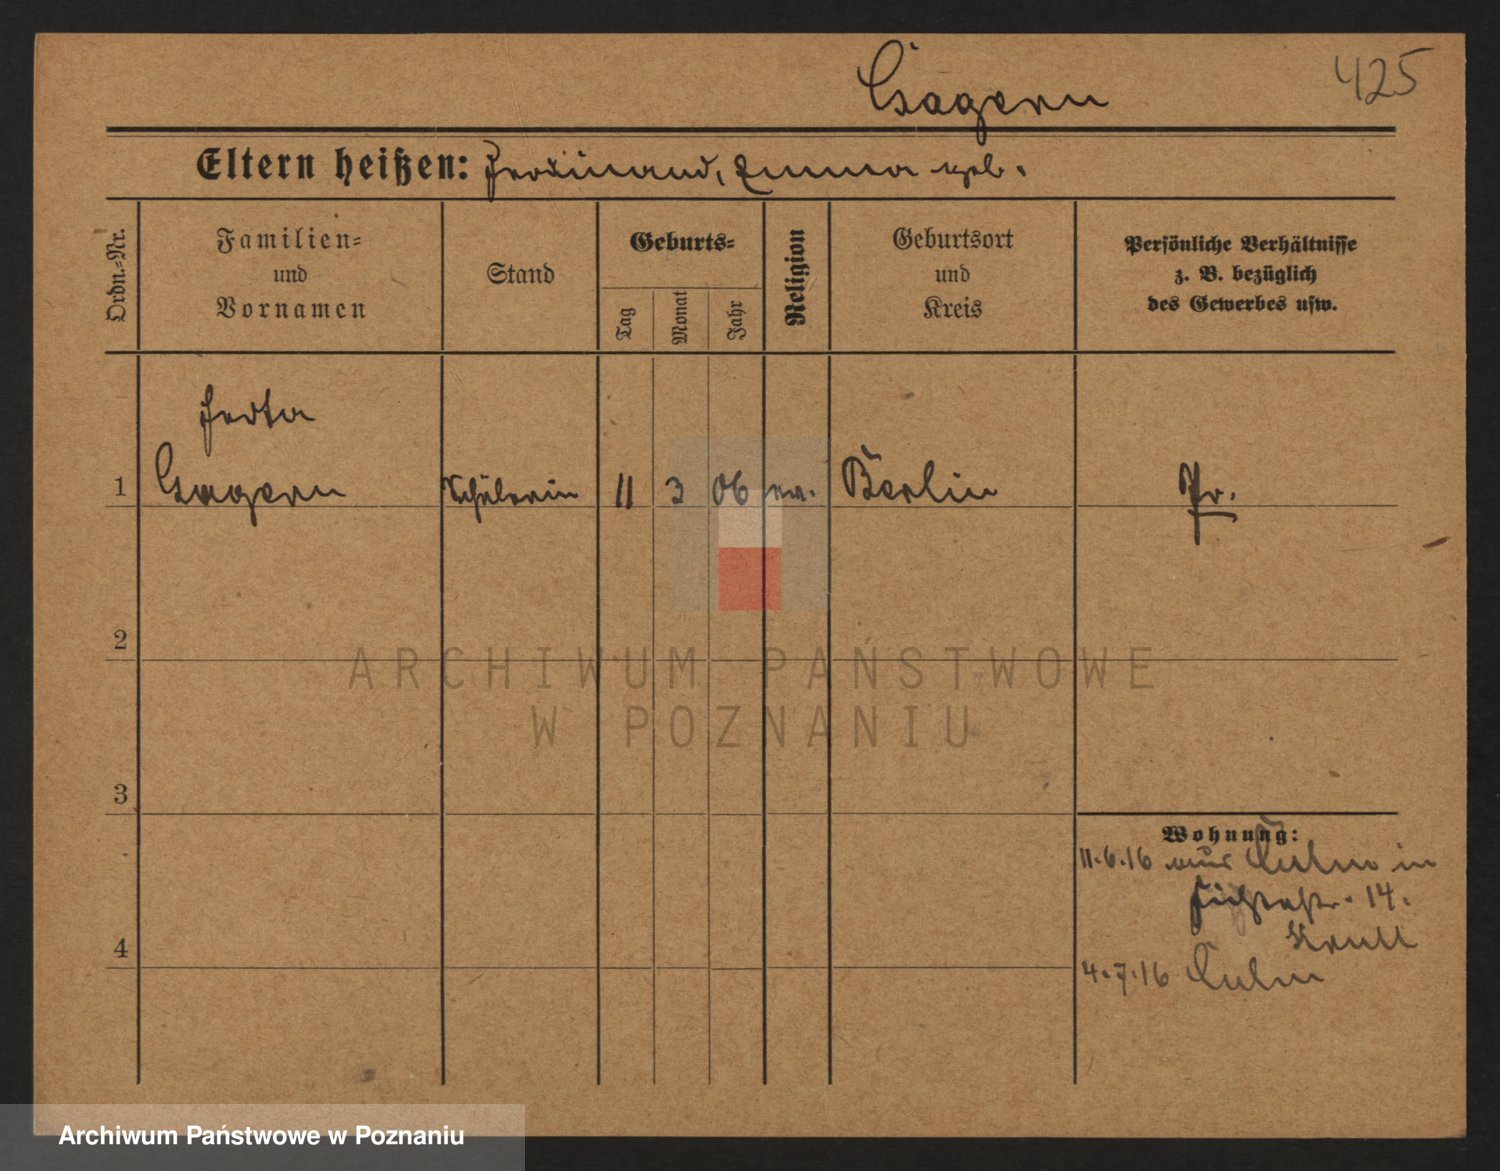 Gagern
425
Eltern heißen: Ferdinand, Emma geb.
Ordn.-Nr.
Familien-
und
Vornamen
Stand
Geburts-
Tag
Monat
Jahr
Religion
Geburtsort
und
Kreis
Persönliche Verhältnisse
z. B. bezüglich
des Gewerbes usw.
Herta
1 Gagern Schülerin 11 3 06 ev. Berlin Pr.
2
3
4
Wohnung:
11.6.16 aus Culm in
14.
Krull
4.7.16 Culm
ARCHIWUM PAŃSTWOWE
W POZNANIU
Archiwum Państwowe w Poznaniu